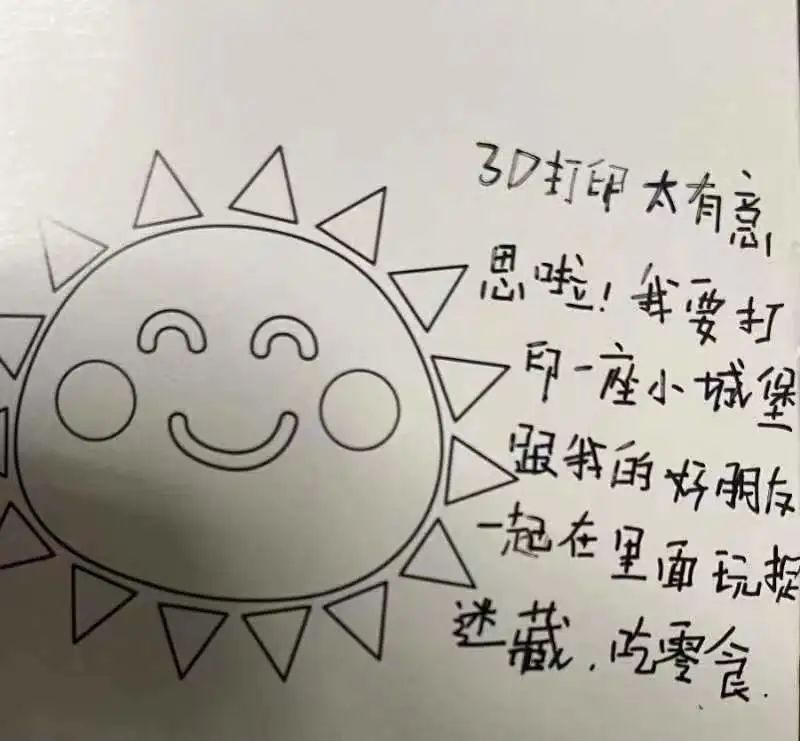 3D打印太有意
思啦！我要打
印一座小城堡
跟我的好朋友
一起在里面玩捉
迷藏、吃零食.